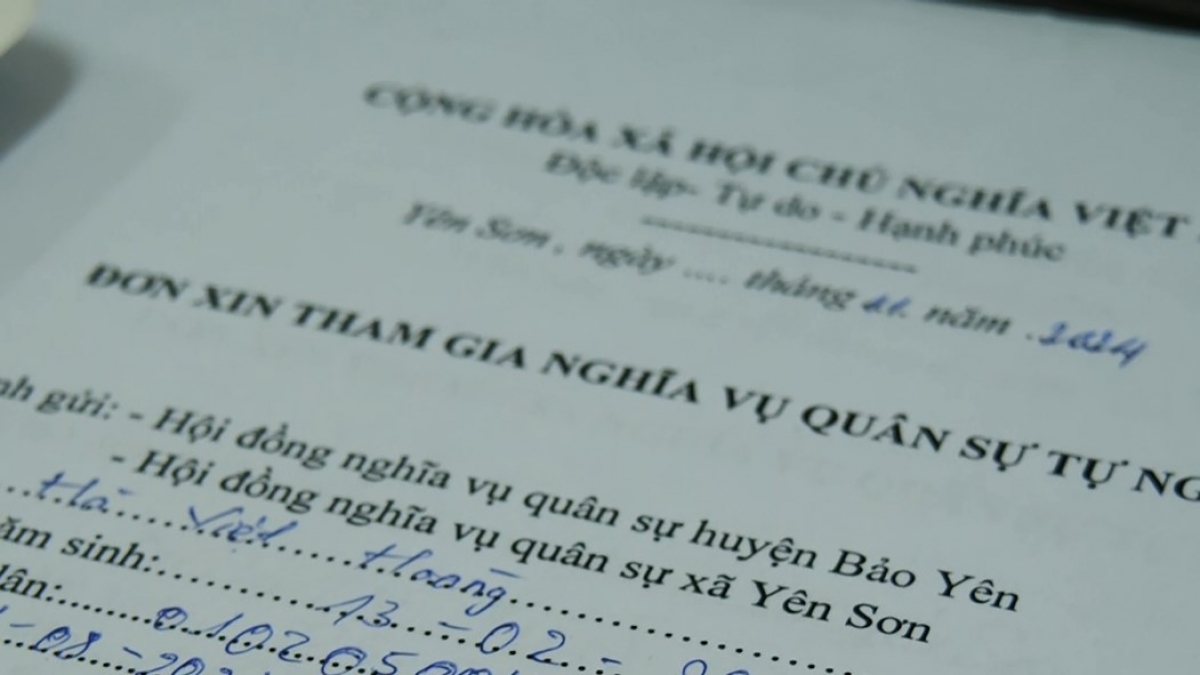 CỘNG HÒA XÃ HỘI CHỦ NGHĨA VIỆT
Độc lập- Tự do - Hạnh phúc
Yên Sơn, ngày .... tháng 11. năm .2024
ĐƠN XIN THAM GIA NGHĨA VỤ QUÂN SỰ TỰ NG
nh gửi: - Hội đồng nghĩa vụ quân sự huyện Bảo Yên
- Hội đồng nghĩa vụ quân sự xã Yên Sơn
Hà Việt Hoàng
ăm sinh: 13 - 02 -
ân: 0102050
- 08 - 202